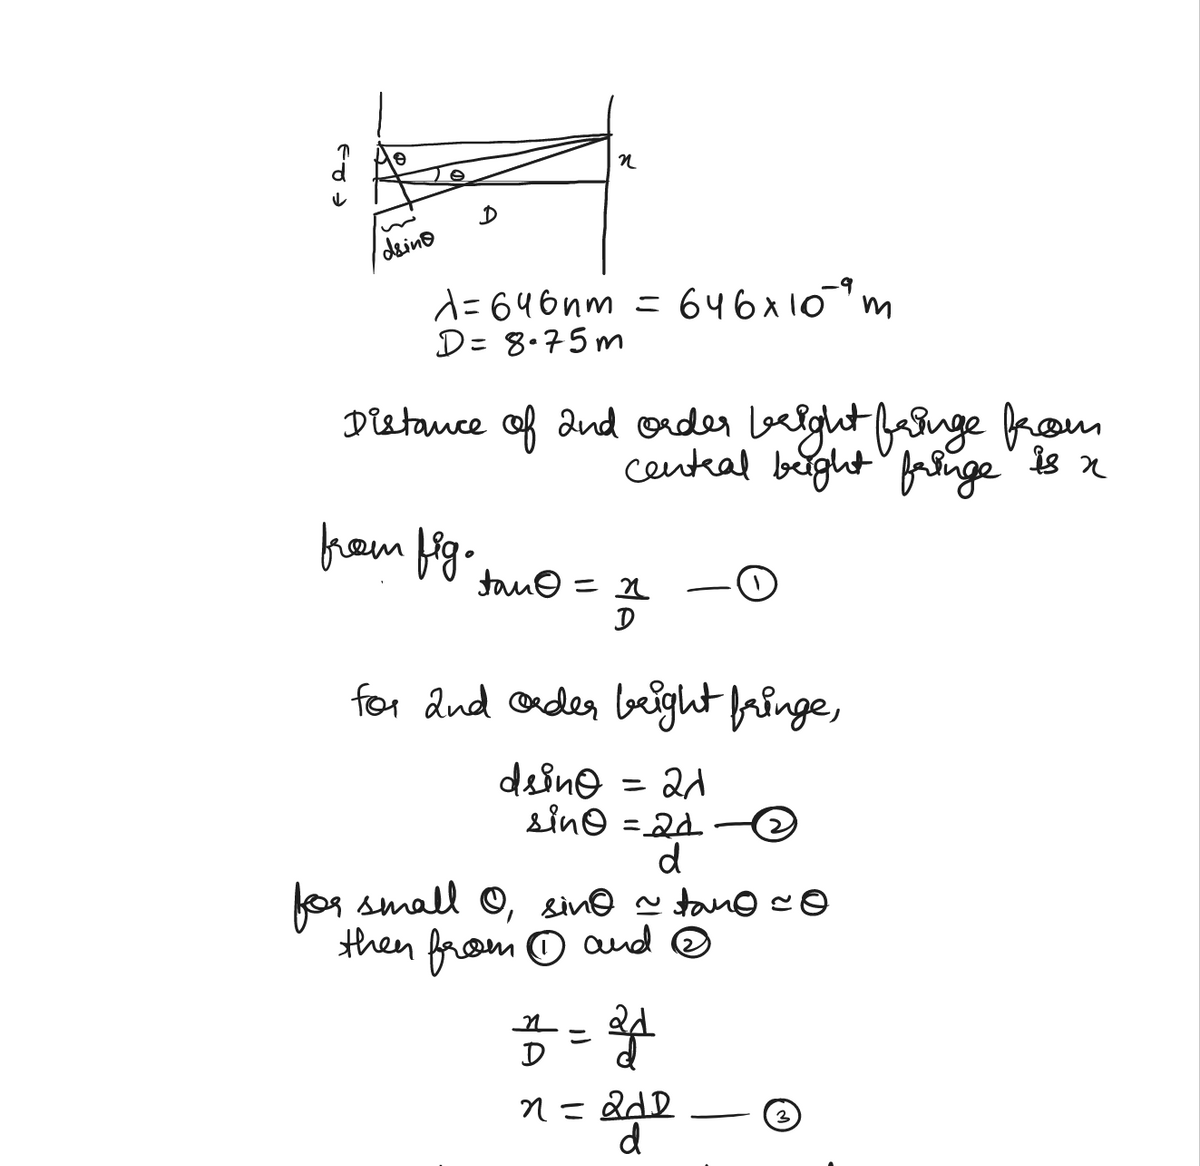 d
θ
θ
x
D
dsinθ
λ = 646nm = 646 × 10⁻⁹ m
D = 8.75m
Distance of 2nd order bright fringe from
central bright fringe is x
from fig.
tanθ = x/D — ①
for 2nd order bright fringe,
dsinθ = 2λ
sinθ = 2λ/d — ②
for small θ, sinθ ≃ tanθ ≃ θ
then from ① and ②
x/D = 2λ/d
x = 2λD/d — ③